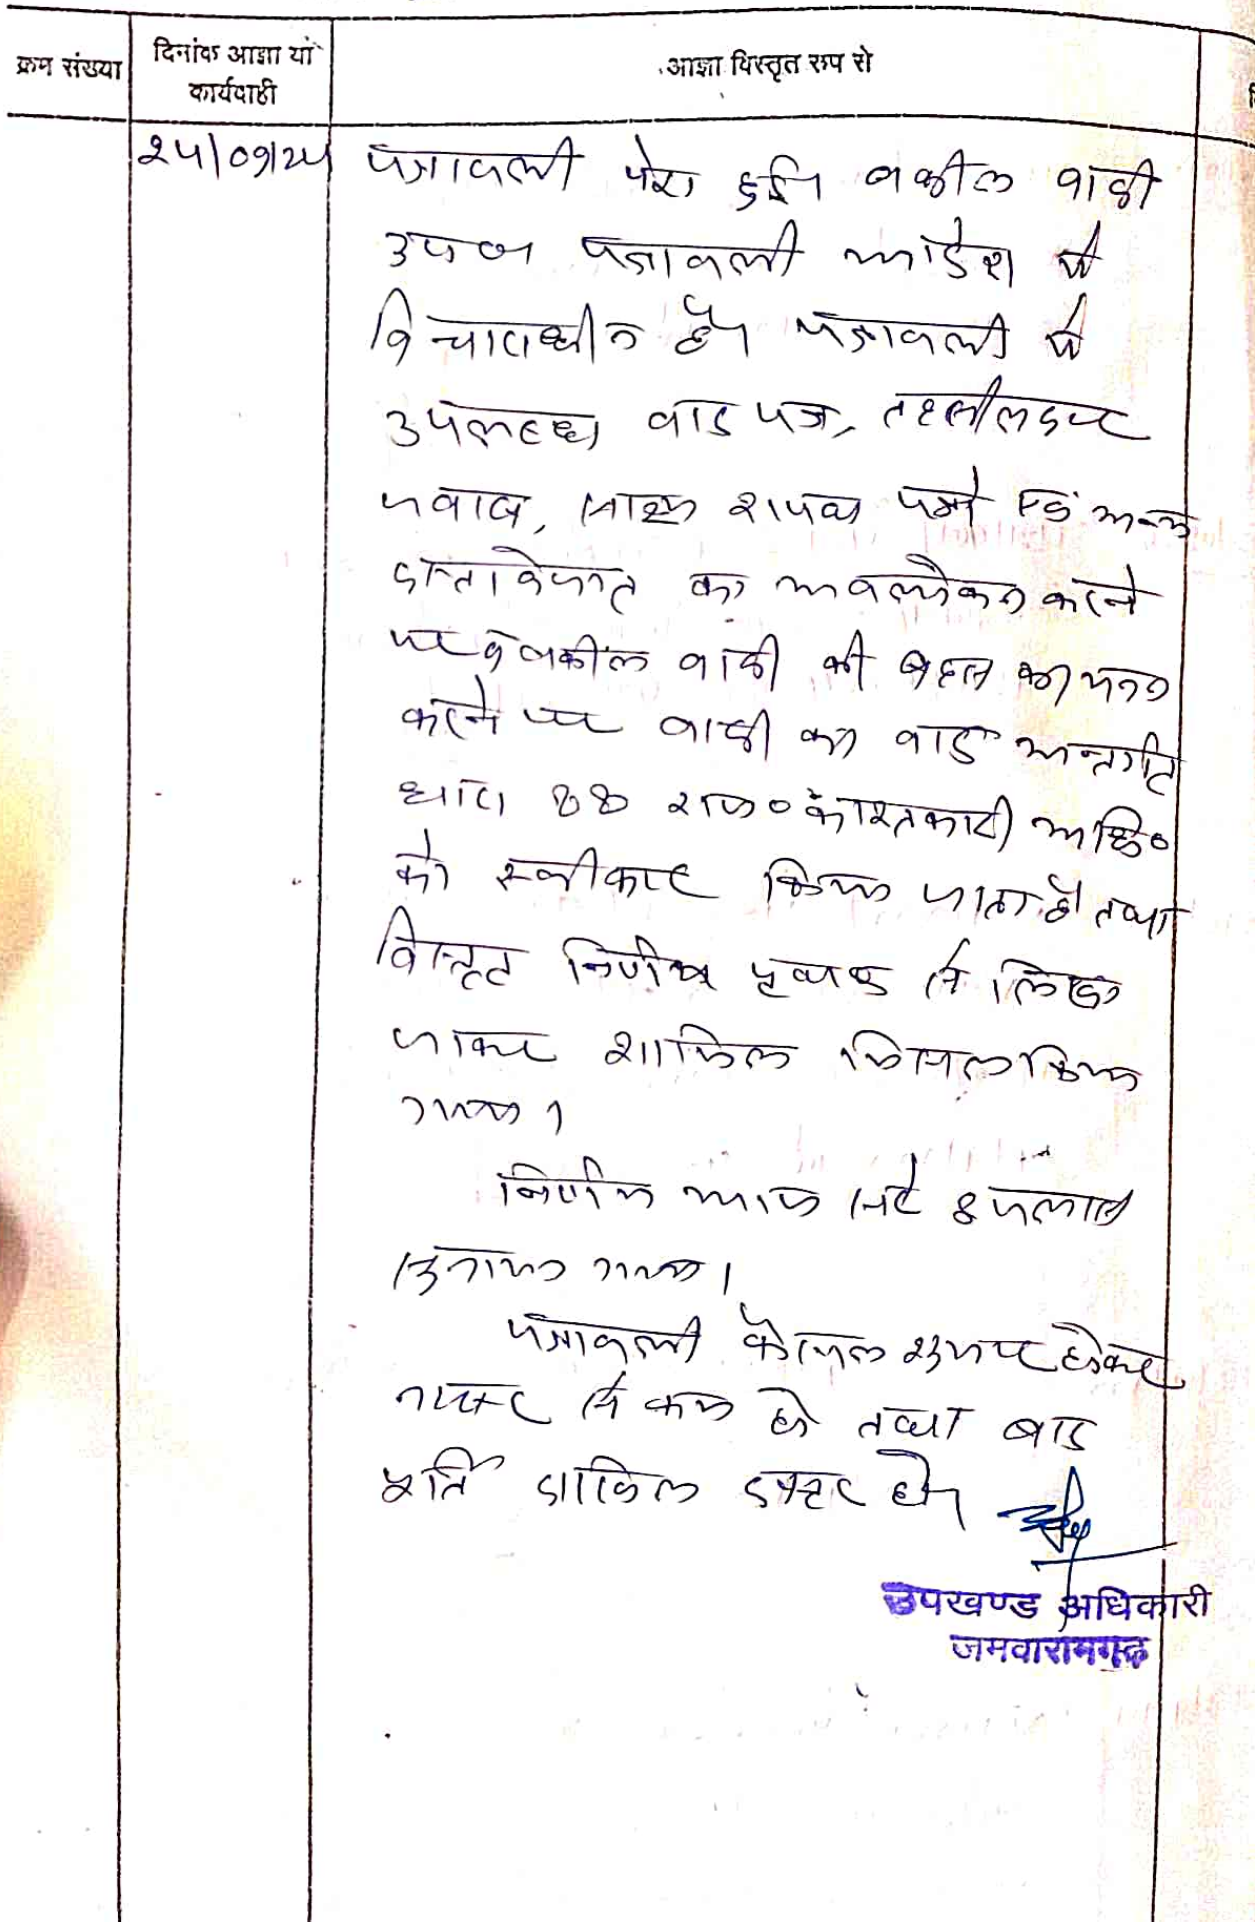 क्रम संख्या
दिनांक आज्ञा या
कार्यवाही
आज्ञा विस्तृत रूप से
25/09/25
पत्रावली पेश हुई। वकील वादी
उप० पत्रावली आदेश में
विचाराधीन है। पत्रावली में
उपलब्ध वाद पत्र, तहसीलदार
जवाब, साक्ष्य शपथ पत्रों एवं अन्य
दस्तावेजात का अवलोकन करने
पर व वकील वादी की बहस का मनन
करने पर वादी का वाद अन्तर्गत
धारा 88 राज० काश्तकारी अधि०
को स्वीकार किया जाता है तथा
विस्तृत निर्णय पृथक से लिखा
जाकर शामिल मिसल किया
गया।
निर्णय आज सरे इजलास
सुनाया गया।
पत्रावली फैसल शुमार होकर
नम्बर से कम हो तथा बाद
पूर्ति दाखिल दफ्तर हो।
उपखण्ड अधिकारी
जमवारामगढ